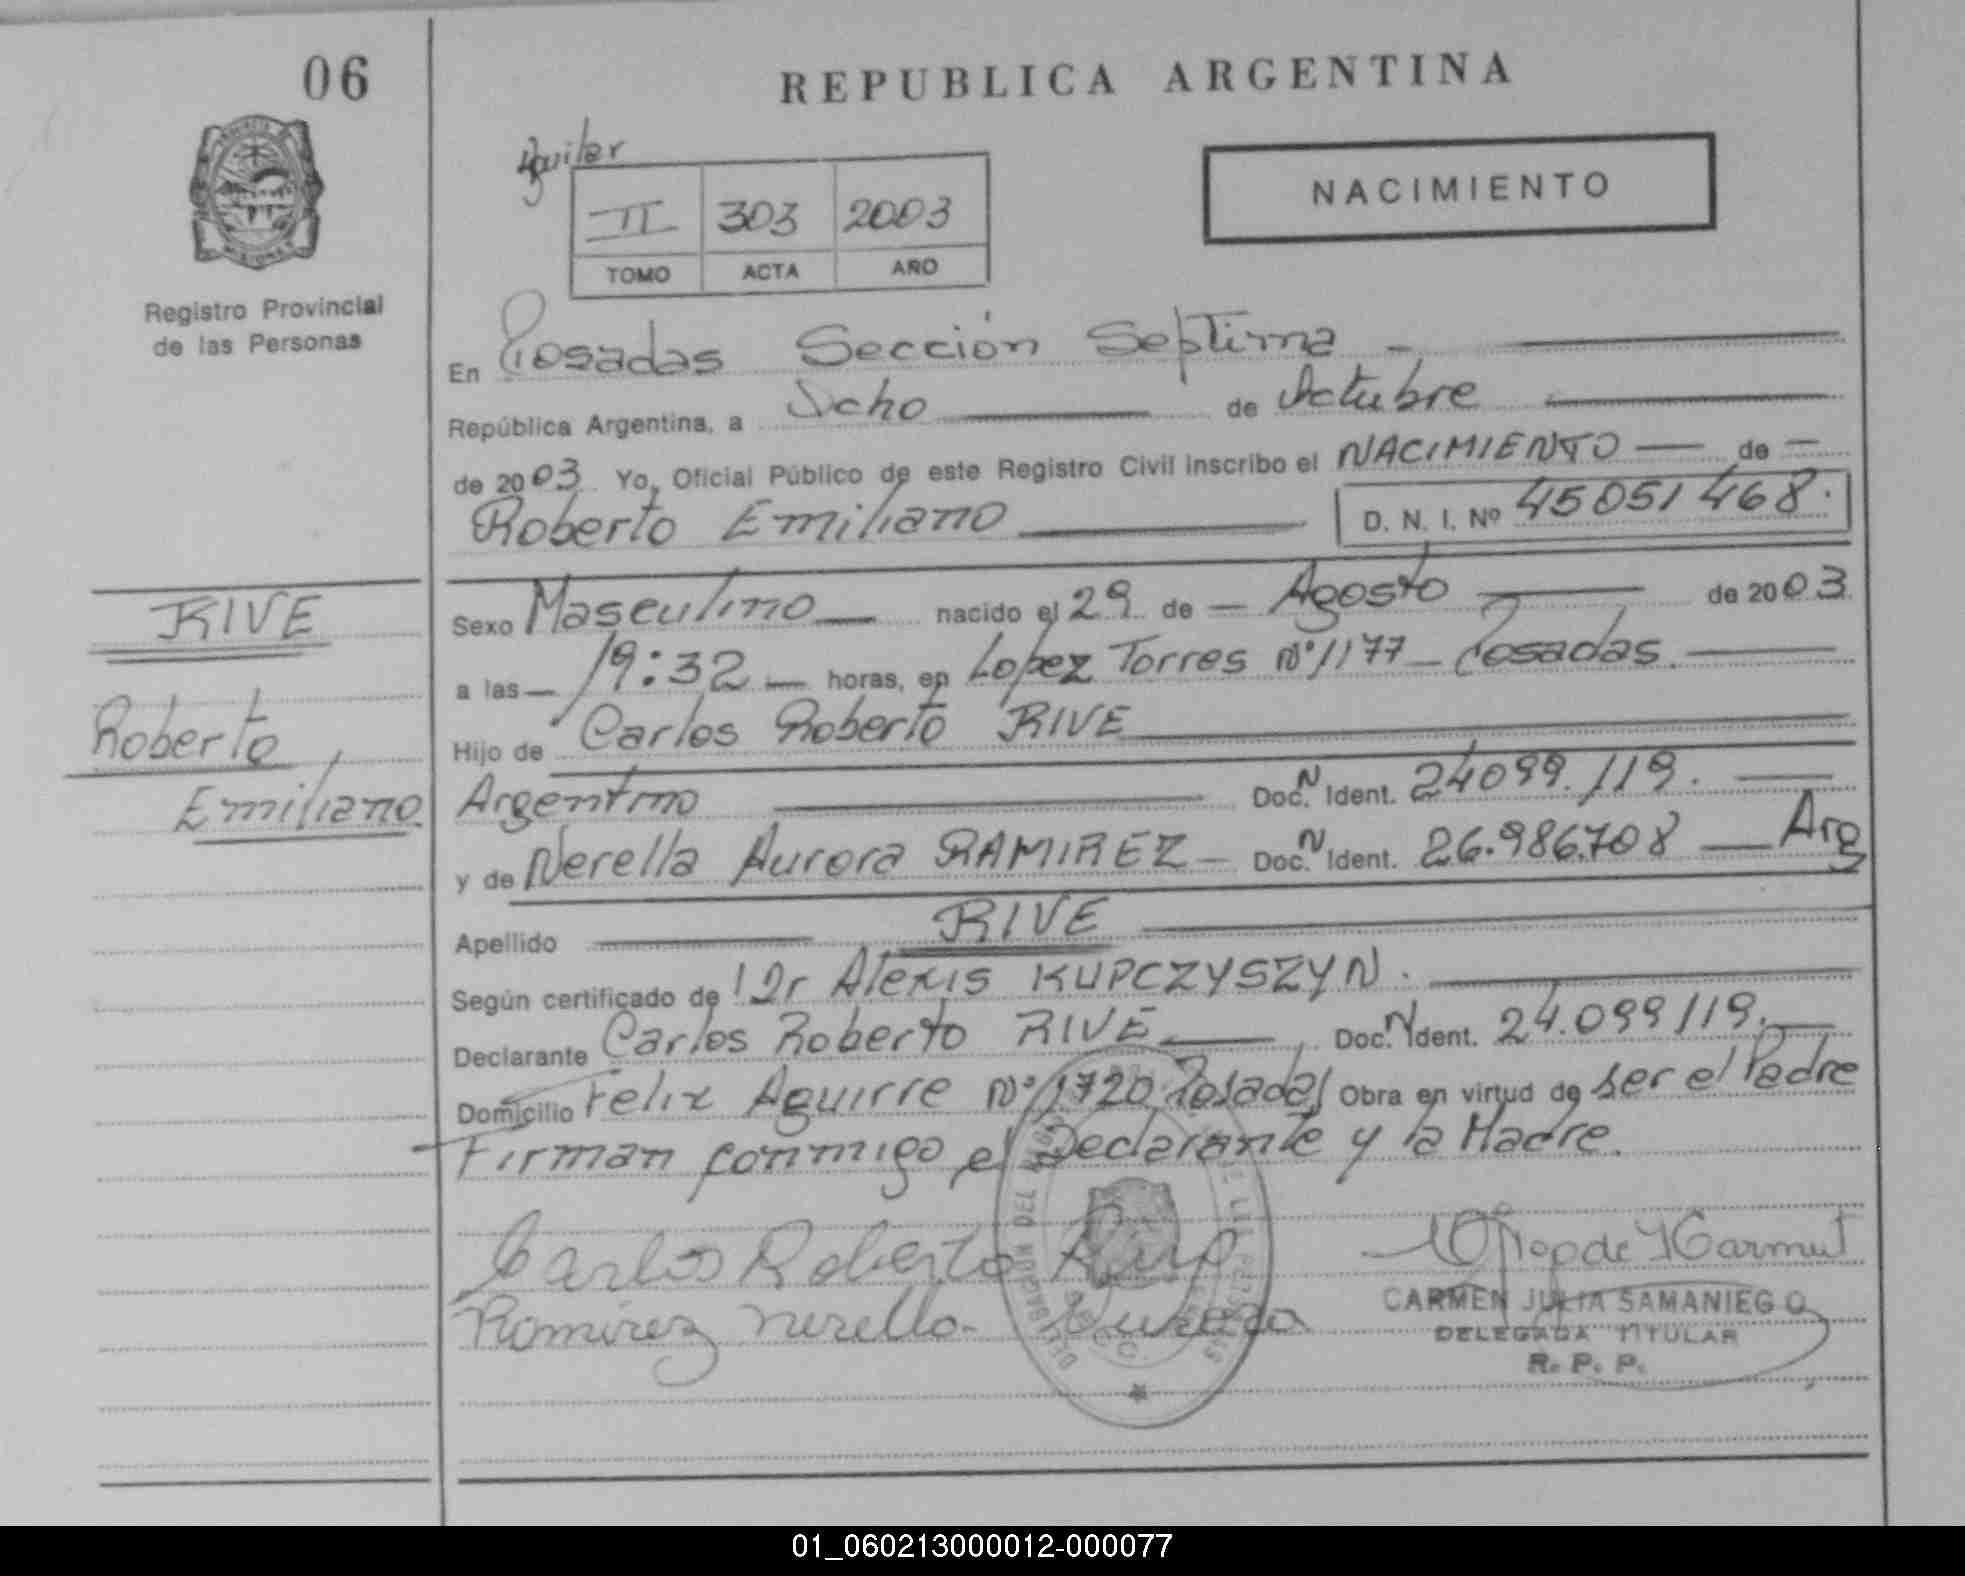 06
REPUBLICA ARGENTINA
Aguilar
NACIMIENTO
II 303 2003
TOMO ACTA AÑO
Registro Provincial
de las Personas
En Posadas Sección Septima
República Argentina, a Ocho de Octubre
de 2003 Yo, Oficial Público de este Registro Civil inscribo el NACIMIENTO de
Roberto Emiliano D. N. I. Nº 45051468.
RIVE
Roberto
Emiliano
Sexo Masculino nacido el 29 de Agosto de 2003
a las 19:32 horas, en Lopez Torres Nº 1177 - Posadas.
Hijo de Carlos Roberto RIVE
Argentino Doc. N Ident. 24099.119.
y de Nerella Aurora RAMIREZ Doc. N Ident. 26.986.708 Arg
Apellido RIVE
Según certificado de Dr Alexis KUPCZYSZYN.
Declarante Carlos Roberto RIVE Doc. N Ident. 24.099119.
Domicilio Felix Aguirre Nº 1720 Posadas Obra en virtud de ser el Padre
Firman conmigo el Declarante y la Madre.
Carlos Roberto Rive
Ramirez Nerella Aurora
CARMEN JULIA SAMANIEGO
DELEGADA TITULAR
R. P. P.
01_060213000012-000077